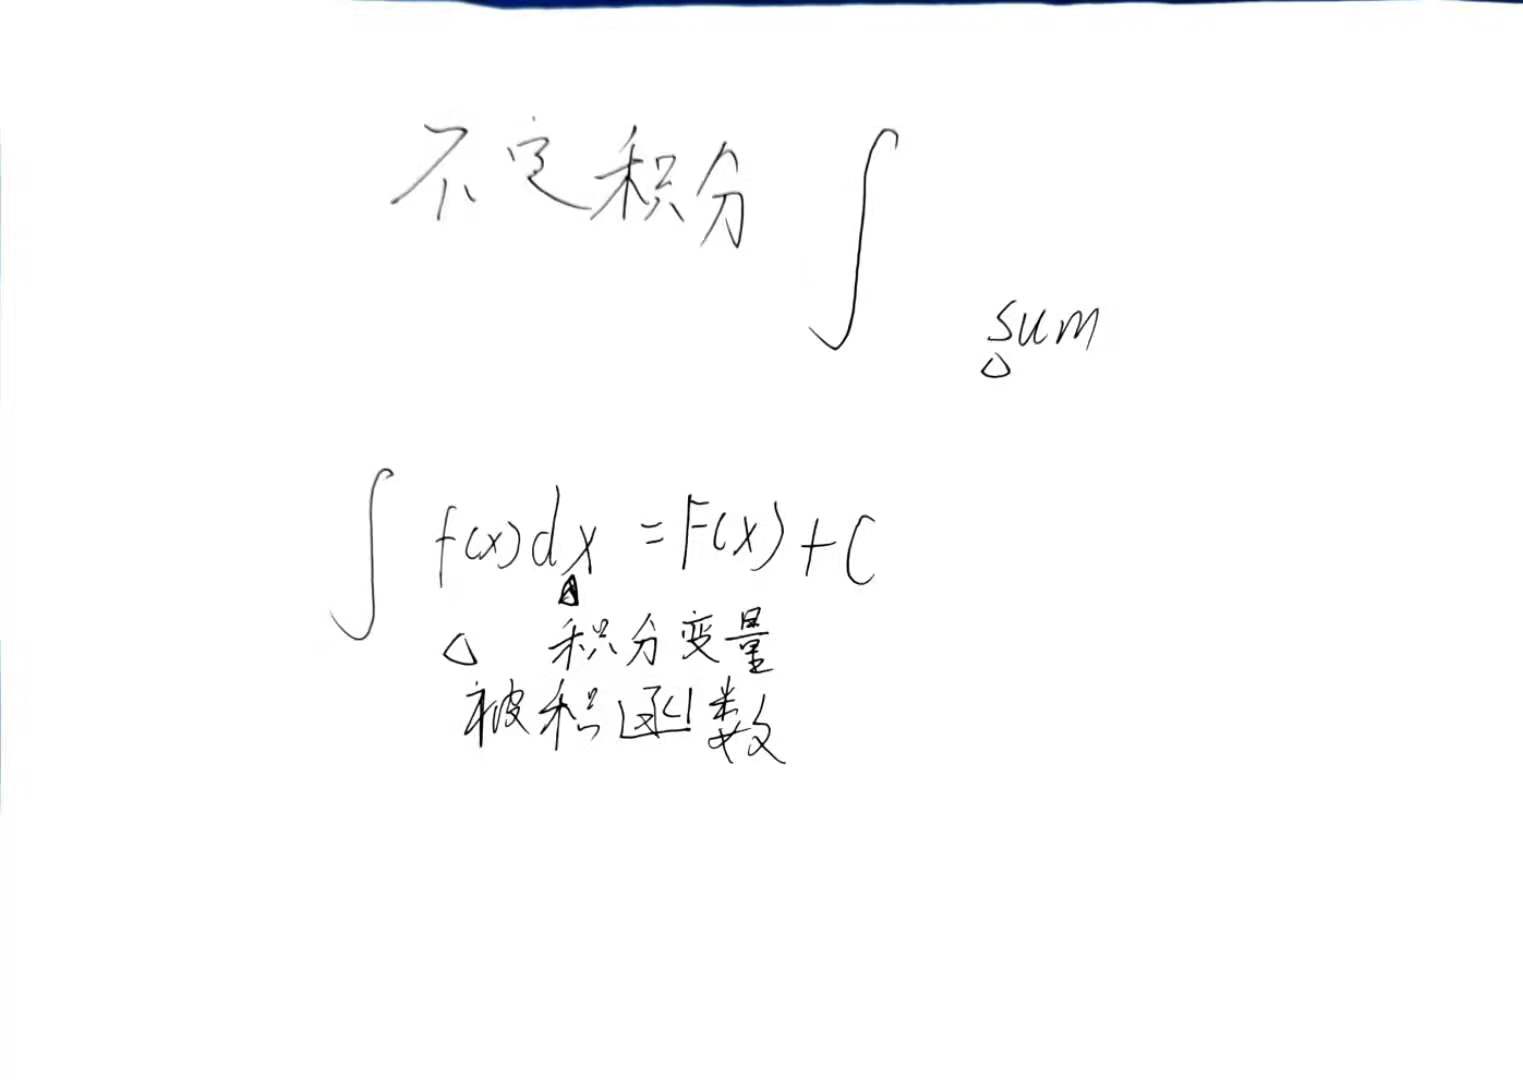 不定积分 ∫
sum
∫ f(x)dx = F(x) + C
积分变量
被积函数